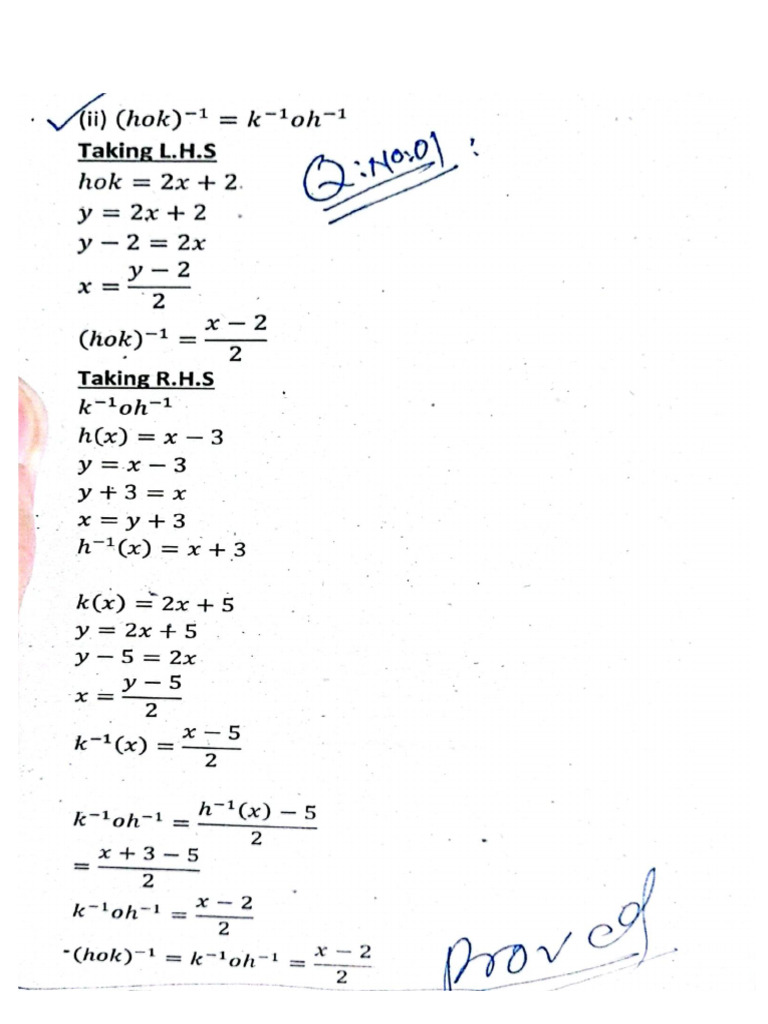 (ii) (hok)⁻¹ = k⁻¹oh⁻¹
Q:No:01 :
Taking L.H.S
hok = 2x + 2
y = 2x + 2
y − 2 = 2x
x = (y − 2)/2
(hok)⁻¹ = (x − 2)/2
Taking R.H.S
k⁻¹oh⁻¹
h(x) = x − 3
y = x − 3
y + 3 = x
x = y + 3
h⁻¹(x) = x + 3
k(x) = 2x + 5
y = 2x + 5
y − 5 = 2x
x = (y − 5)/2
k⁻¹(x) = (x − 5)/2
k⁻¹oh⁻¹ = (h⁻¹(x) − 5)/2
= (x + 3 − 5)/2
k⁻¹oh⁻¹ = (x − 2)/2
(hok)⁻¹ = k⁻¹oh⁻¹ = (x − 2)/2
Proved